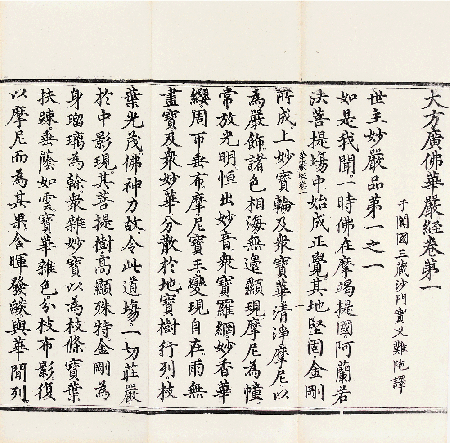 大方廣佛華嚴經卷第一
于闐國三藏沙門實叉難陁譯
世主妙嚴品第一之一
如是我聞一時佛在摩竭提國阿蘭若
法菩提場中始成正覺其地堅固金剛
所成上妙寶輪及衆寶華清淨摩尼以
為嚴飾諸色相海無邊顯現摩尼為幢
常放光明恒出妙音衆寶羅網妙香華
纓周帀垂布摩尼寶王變現自在雨無
盡寶及衆妙華分散於地寶樹行列枝
葉光茂佛神力故令此道場一切莊嚴
於中影現其菩提樹高顯殊特金剛為
身瑠璃為幹衆雜妙寶以為枝條寶葉
扶踈垂蔭如雲寶華雜色分枝布影復
以摩尼而為其果含暉發燄與華閒列